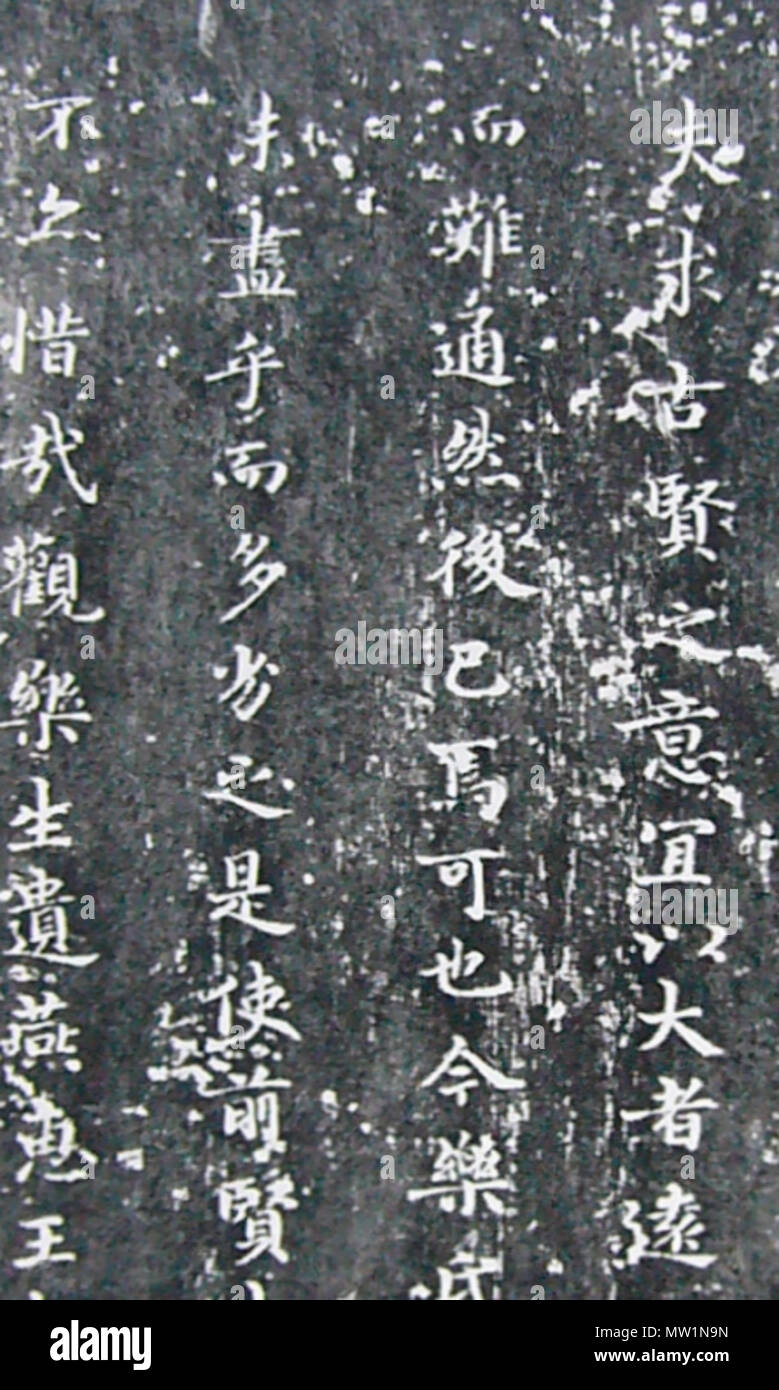 夫求古賢之意宜以大者遠
而難通然後已焉可也今樂氏
未盡乎而多劣之是使前賢
不 惜哉觀樂生遺燕惠王
alamy
Image ID: MW1N9N
www.alamy.com